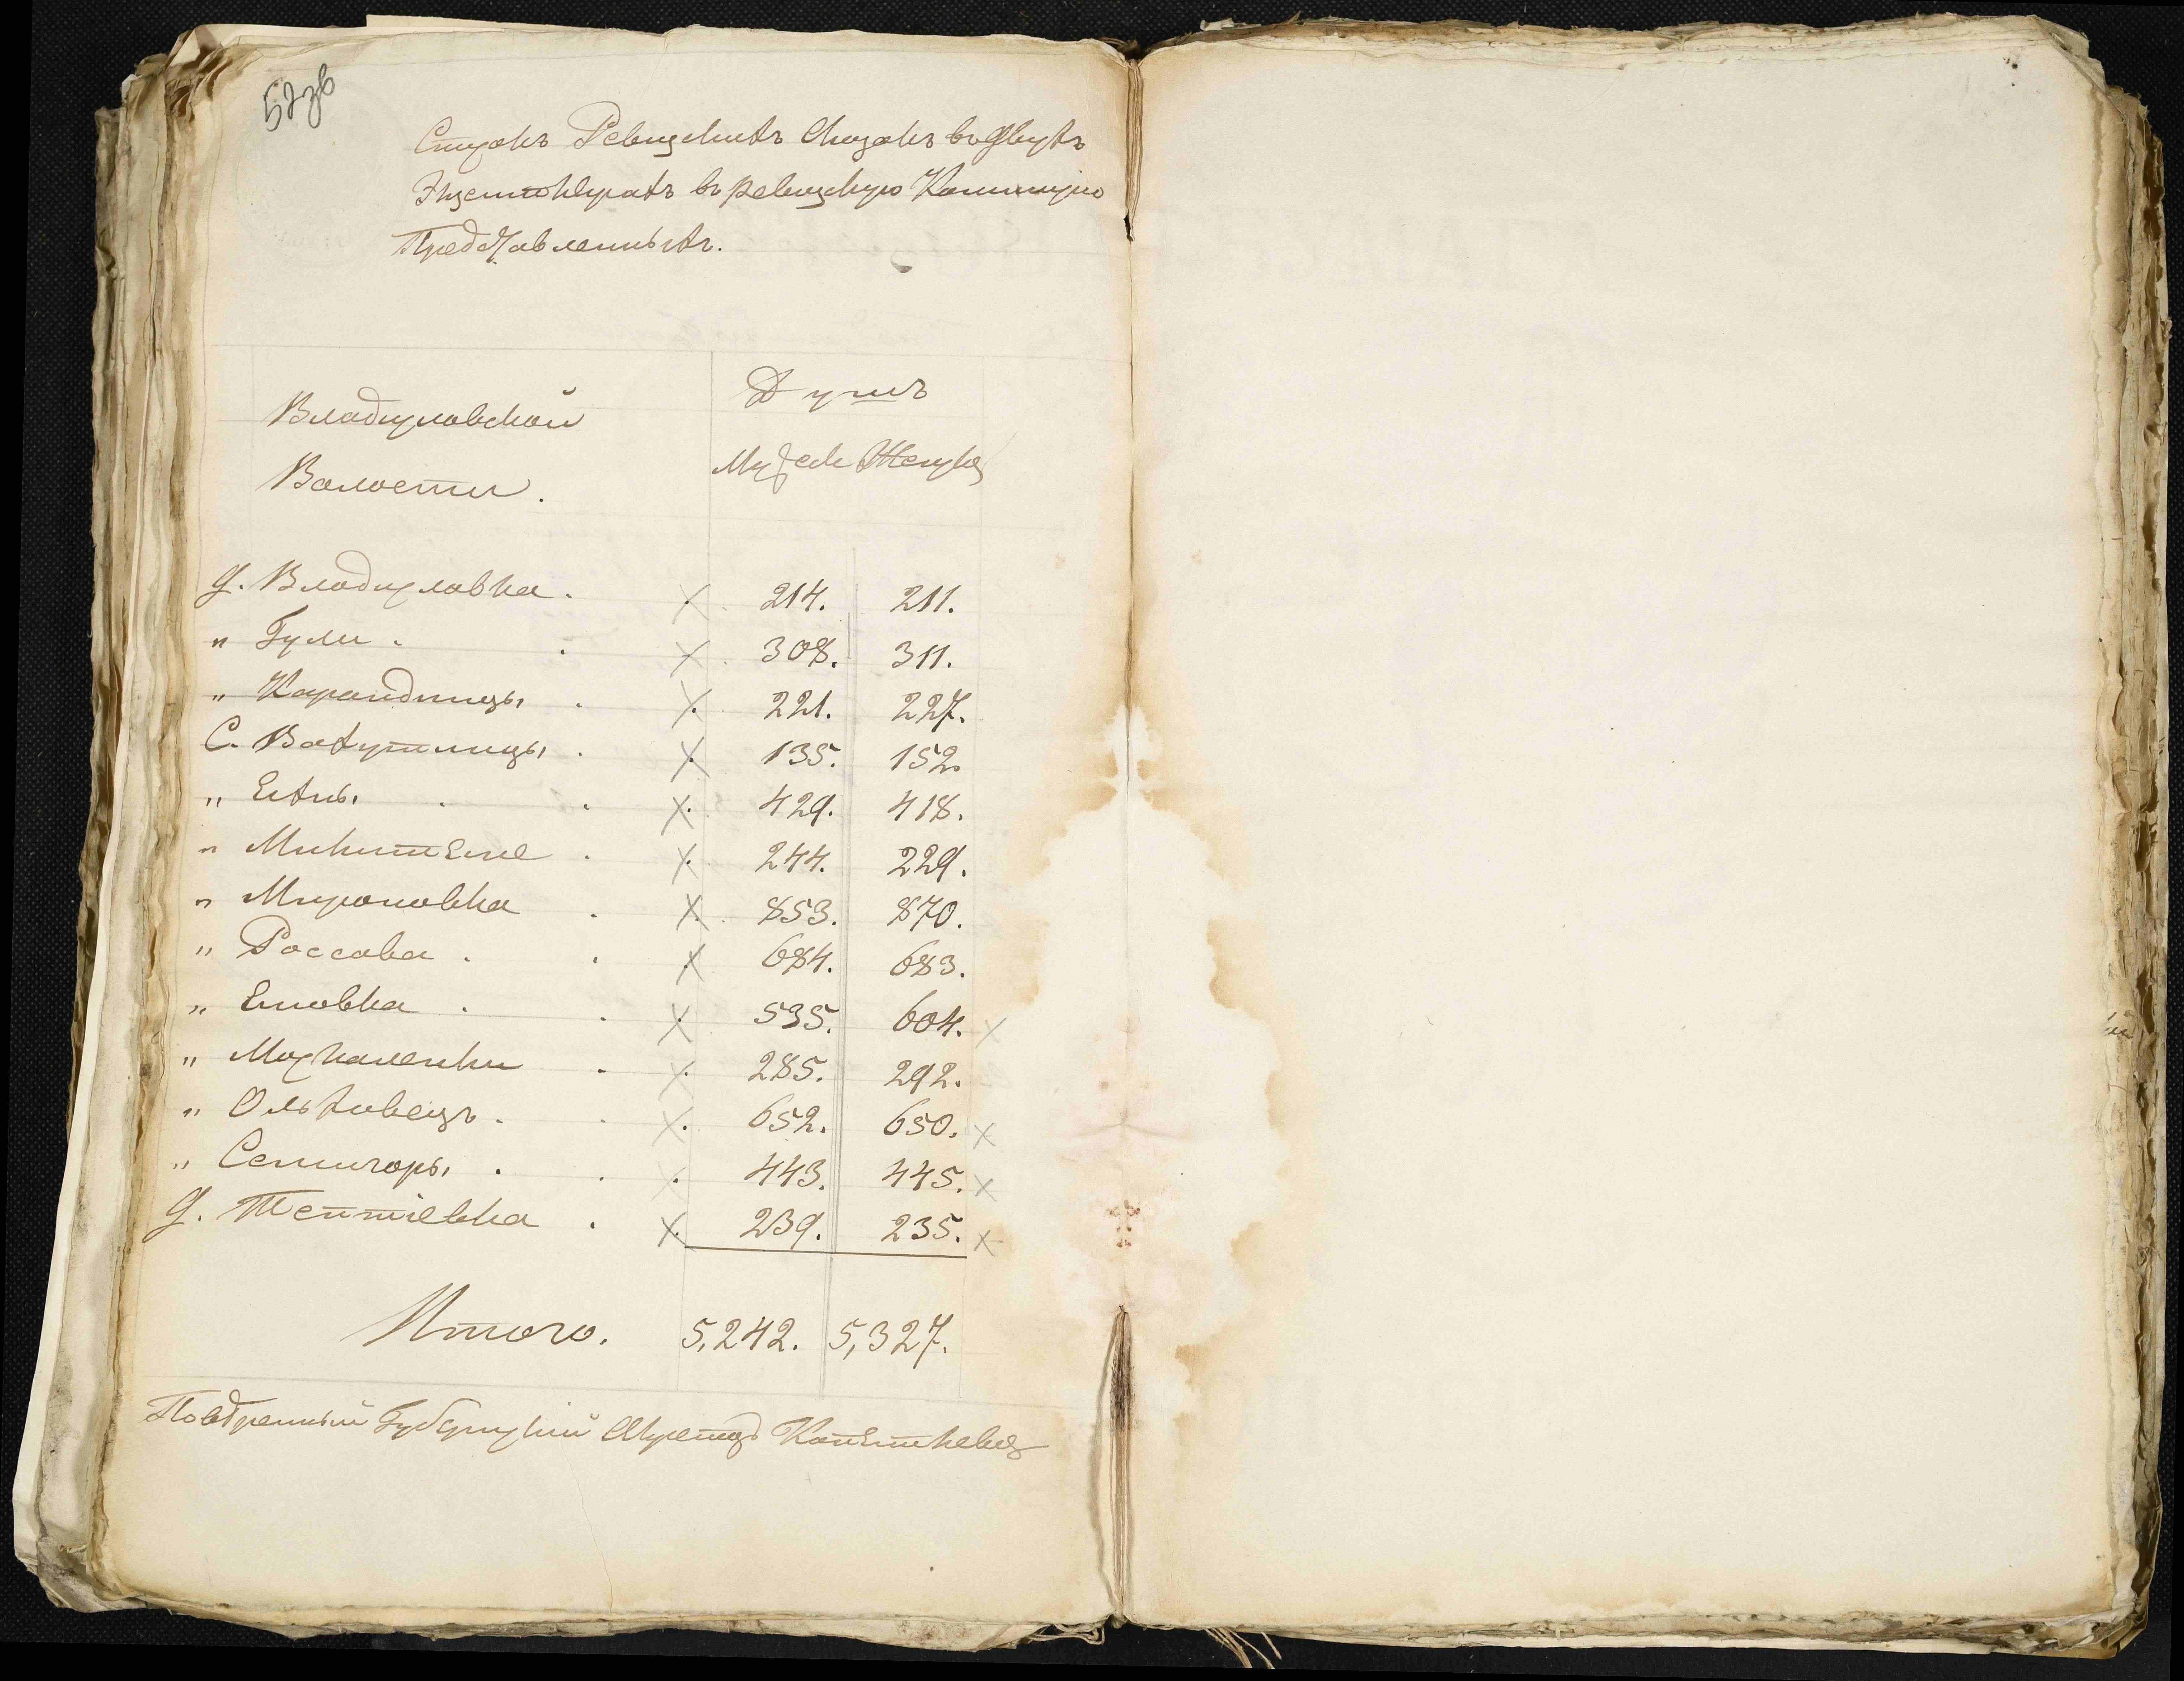 52зв
Списокъ Ревизскихъ Сказокъ въ двухъ
Экземплярахъ въ ревизскую Коммисію
Представленныхъ.
Владиславской
Волости.
Душъ
Мужеск Женска
д. Владиславка. 214. 211.
" Гули. 308. 311.
" Карандинцы 221. 227.
С. Вахутинцы 135. 152.
" Ехны 429. 418.
" Микитяне 244. 229.
" Мироновка 853. 870.
" Россава. 684. 683.
" Емовка 535. 604.
" Москаленки 285. 292.
" Ольховецъ. 652. 650.
" Семигоры 443. 445.
д. Тептіевка 239. 235.
Итого. 5,242. 5,327.
Повѣренный Губернскій